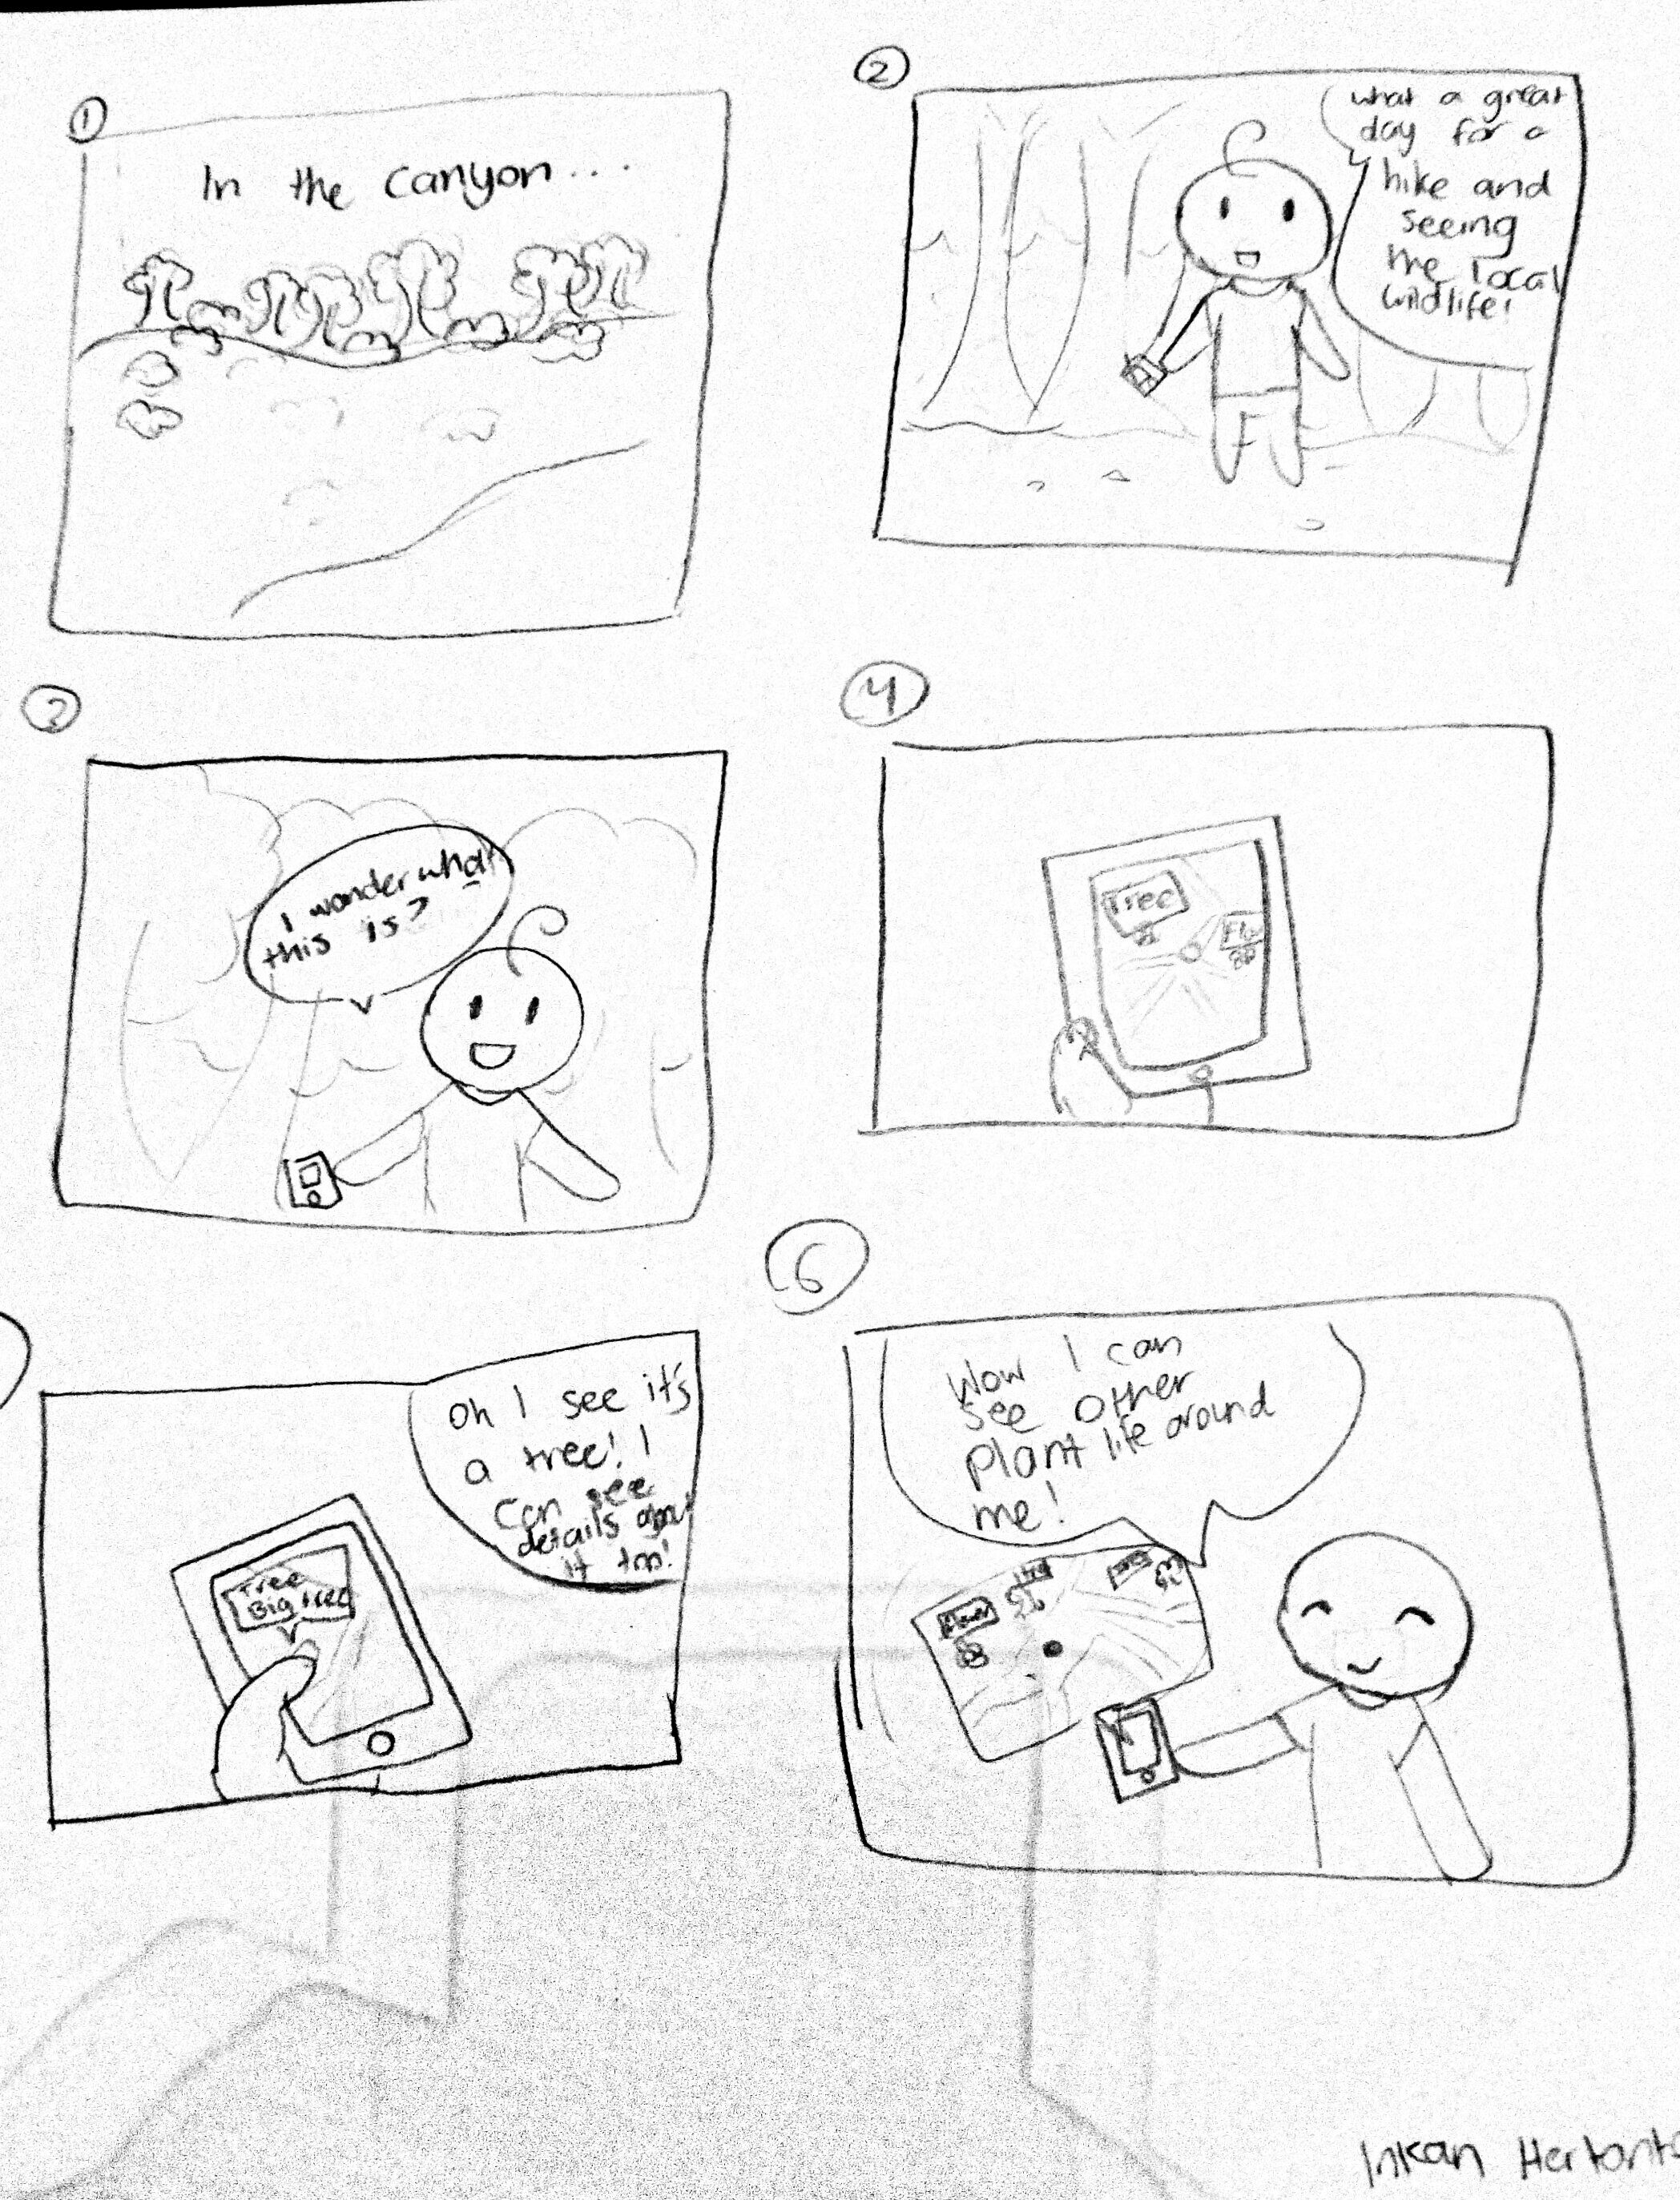 1
In the canyon...
2
what a great
day for a
hike and
seeing
the local
wildlife!
3
I wonder what
this is?
4
Tree
Flo
Oh I see it's
a tree! I
Can see
details about
it too!
Tree
Big tree
6
Wow I can
see other
plant life around
me!
Flower
Inkan